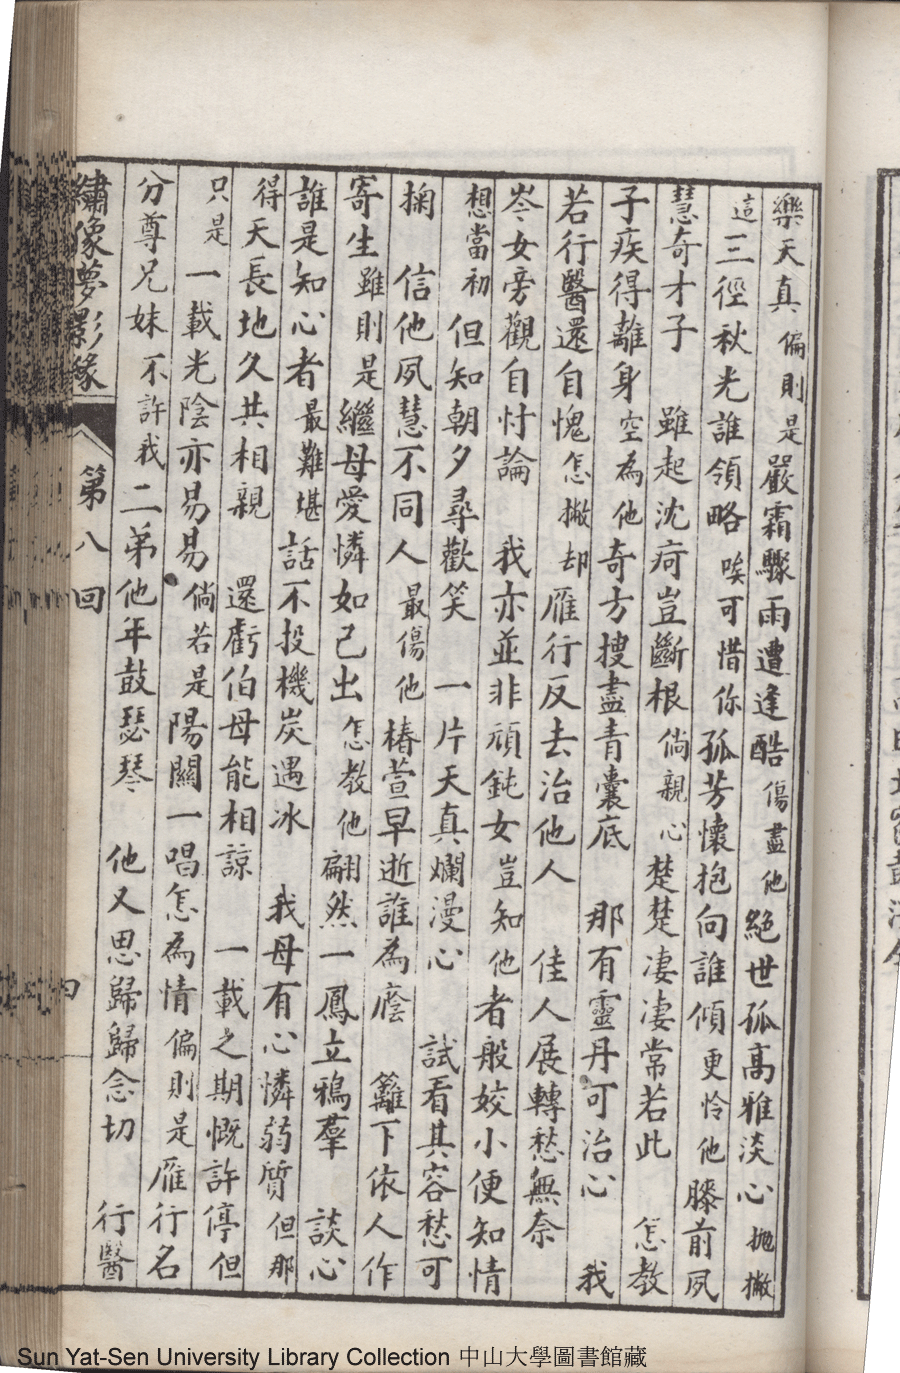 樂天真偏則是嚴霜驟雨遭逢酷傷盡他絕世孤高雅淡心拋撇
這三徑秋光誰領略唉可惜你孤芳懷抱向誰傾更怜他膝前夙
慧奇才子　雖起沈疴豈斷根倘親心楚楚凄凄常若此　怎教
子疾得離身空為他奇方搜盡青囊底　那有靈丹可治心　我
若行醫還自愧怎撇却雁行反去治他人　佳人展轉愁無奈
岑女旁觀自忖論　我亦並非頑鈍女豈知他者般姣小便知情
想當初但知朝夕尋歡笑　一片天真爛漫心　試看其容愁可
掬　信他夙慧不同人最傷他椿萱早逝誰為廕　籬下依人作
寄生雖則是繼母愛憐如己出怎教他翩然一鳳立鴉羣　談心
誰是知心者最難堪話不投機炭遇冰　我母有心憐弱質但那
得天長地久共相親　還虧伯母能相諒　一載之期慨許停但
只是一載光陰亦易易倘若是陽關一唱怎為情偏則是雁行名
分尊兄妹不許我二弟他年鼓瑟琴　他又思歸歸念切　行醫
繡像夢影緣　第八回　四
Sun Yat-Sen University Library Collection 中山大學圖書館藏